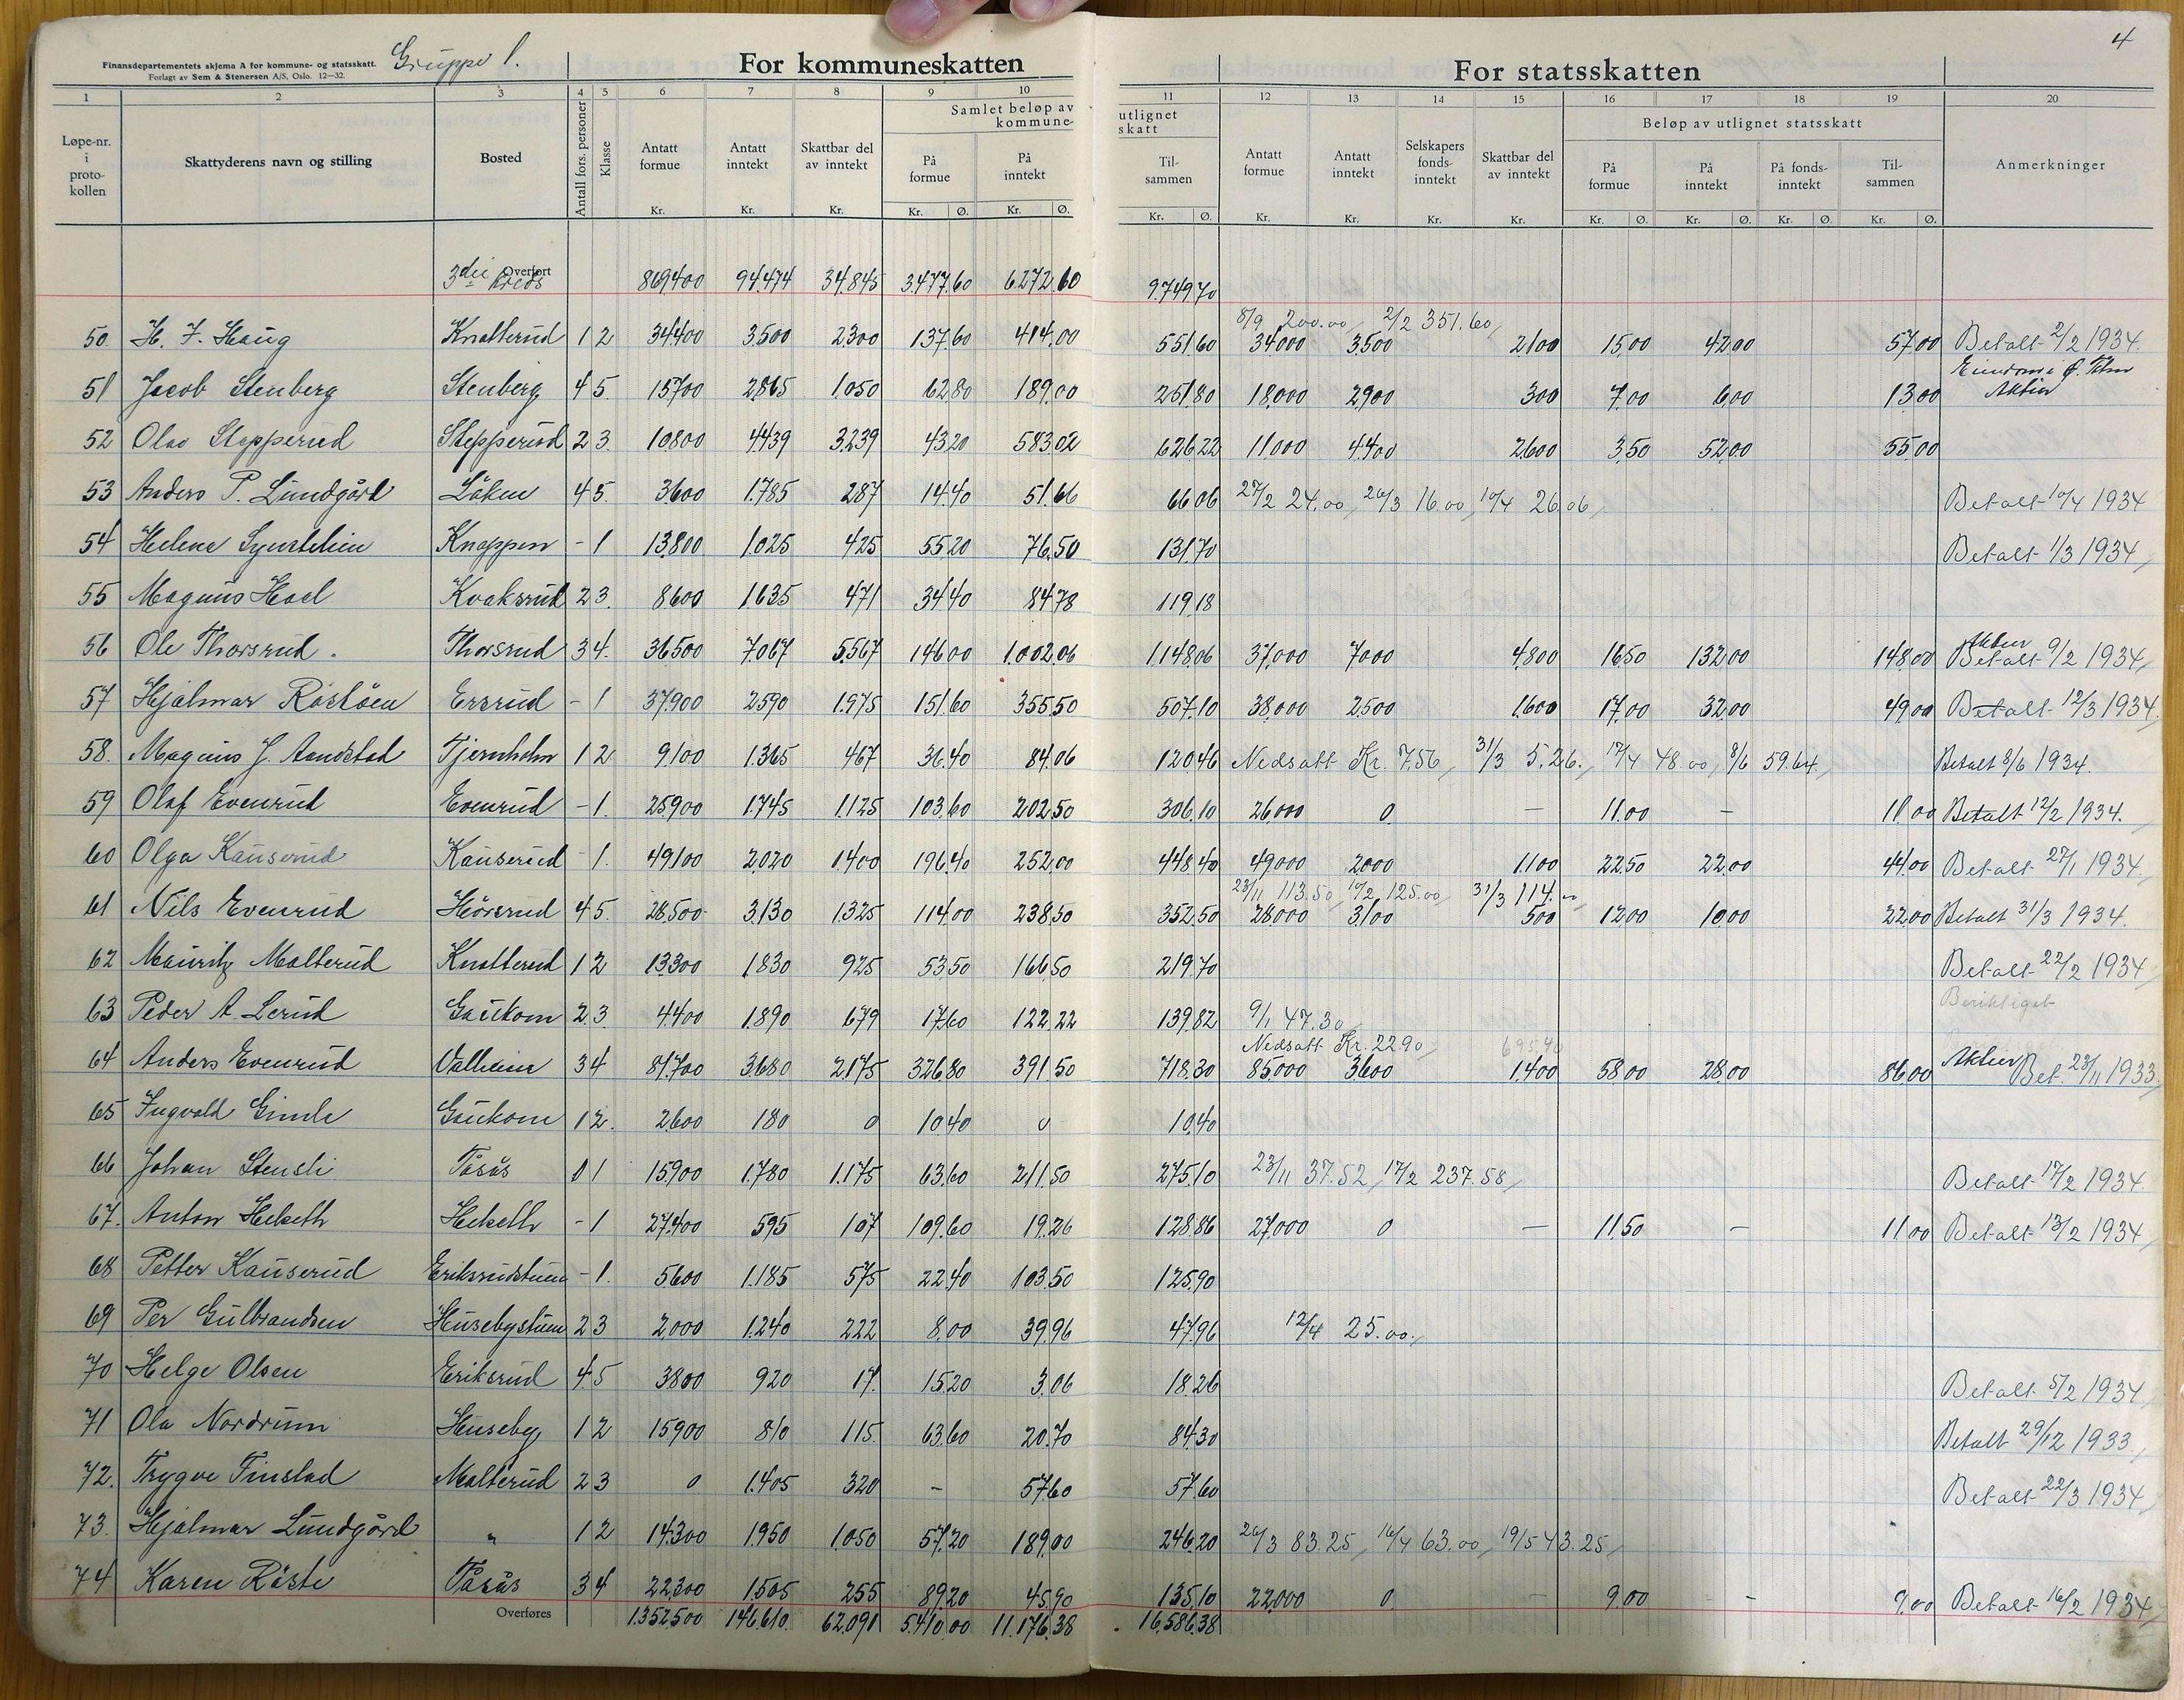 4
Finansdepartementets skjema A for kommune- og statsskatt. Gruppe 1.
Forlagt av Sem & Stenersen A/S, Oslo. 12—32.
For kommuneskatten For statsskatten
1 2 3 4 5 6 7 8 9 10 11 12 13 14 15 16 17 18 19 20
Løpe-nr. i proto-kollen Skattyderens navn og stilling Bosted Antall fors. personer Klasse Antatt formue Antatt inntekt Skattbar del av inntekt Samlet beløp av utlignet kommune-skatt På formue På inntekt Til-sammen Antatt formue Antatt inntekt Selskapers fonds-inntekt Skattbar del av inntekt Beløp av utlignet statsskatt På formue På inntekt På fonds-inntekt Til-sammen Anmerkninger
Kr. Kr. Kr. Kr. Ø. Kr. Ø. Kr. Ø. Kr. Kr. Kr. Kr. Kr. Ø. Kr. Ø. Kr. Ø. Kr. Ø.
3die kreds Overført 869400 94.474 34.845 3.477.60 6.272.60 9.749.70
8/9 200.00, 2/2 351.60,
50. H. F. Haug Knatterud 1 2 34400 3.500 2300 137.60 414.00 551.60 34.000 3.500 2100 15.00 42.00 57.00 Betalt 2/2 1934.
51 Jacob Stenberg Stenberg 4 5. 15700 2.865 1.050 62.80 189.00 251.80 18.000 2.900 300 7.00 6.00 13.00 Aktier
52 Olav Stepperud Stepperud 2 3. 10.800 4.439 3.239 43.20 583.02 626.22 11.000 4.400 2.600 3.50 52.00 55.00
53 Anders P. Lundgård Låken 4 5. 3.600 1.785 287 14.40 51.66 66.06 27/2 24.00, 26/3 16.00, 10/4 26.06, Betalt 10/4 1934
54 Helene Knappen - 1 13.800 1.025 425 55.20 76.50 131.70 Betalt 1/3 1934,
55 Magnus Hoel Kvaksrud 2 3. 8.600 1.635 471 34.40 84.78 119.18
56 Ole Thorsrud. Thorsrud 3 4. 36.500 7.067 5.567 146.00 1.002.06 1.148.06 37.000 7.000 4.800 16.50 132.00 148.00 Aktier Betalt 9/2 1934,
57 Hjalmar Röstöen Ersrud - 1 37.900 2590 1.975 151.60 355.50 507.10 38.000 2.500 1.600 17.00 32.00 49.00 Betalt 12/3 1934.
58. Magnus J. Aandstad Tjernholm 1 2 9.100 1.365 467 36.40 84.06 120.46 Nedsatt Kr. 7.56, 31/3 5.26., 17/4 48.00, 8/6 59.64, Betalt 8/6 1934.
59 Olaf Evenrud Evenrud - 1. 25.900 1.745 1.125 103.60 202.50 306.10 26.000 0 — 11.00 — 11.00 Betalt 12/2 1934.
60 Olga Kauserud Kauserud - 1. 49.100 2.020 1.400 196.40 252.00 448.40 49.000 2000 1.100 22.50 22.00 44.00 Betalt 27/1 1934.
23/11 113.50, 10/2 125.00, 31/3 114.00
61 Nils Evenrud Hörsrud 4 5. 28.500 3.130 1.325 114.00 238.50 352.50 28.000 3.100 500 12.00 10.00 22.00 Betalt 31/3 1934.
62 Mauritz Malterud Knatterud 1 2 13.300 1.830 925 53.50 166.50 219.70 Betalt 22/2 1934
63 Peder A. Lerud Gaukom 2.3. 4.400 1.890 679 17.60 122.22 139.82 9/1 47.30, Beriktiget
Nedsatt Kr. 22.90, 695.40
64 Anders Evenrud Valheim 3 4 81.700 3.680 2.175 326.80 391.50 718.30 85.000 3.600 1.400 58.00 28.00 86.00 Aktier Bet. 23/11 1933.
65 Ingvald Gimle Gaukom 1 2. 2.600 180 0 10.40 0 10.40
66 Johan Stensli Påsås 0 1 15.900 1.780 1.175 63.60 211.50 275.10 23/11 37.52, 17/2 237.58, Betalt 17/2 1934.
67. Anton Hekseth Hekseth - 1 27.400 595 107 109.60 19.26 128.86 27.000 0 — 11.50 — 11.00 Betalt 13/2 1934,
68 Petter Kauserud Eriksrudstuen - 1. 5.600 1.185 575 22.40 103.50 125.90
69 Per Gulbrandsen Husebystuen 2 3 2.000 1.240 222 8.00 39.96 47.96 12/4 25.00.,
70 Helge Olsen Eriksrud 4 5 3.800 920 17. 15.20 3.06 18.26 Betalt 5/2 1934,
71 Ola Nordrum Huseby 1 2 15.900 810 115. 63.60 20.70 84.30 Betalt 29/12 1933.,
72. Trygve Finstad Malterud 2 3 0 1.405 320 - 57.60 57.60 Betalt 22/3 1934,
73. Hjalmar Lundgård " 1 2 14.300 1.950 1.050 57.20 189.00 246.20 26/3 83.25, 16/4 63.00, 19/5 43.25,
74 Karen Röste Påsås 3 4 22.300 1.505 255 89.20 45.90 135.10 22.000 0 — 9.00 - 9.00 Betalt 16/2 1934,
Overføres 1.352.500 146.610. 62.091 5.410.00 11.176.38 16.586.38